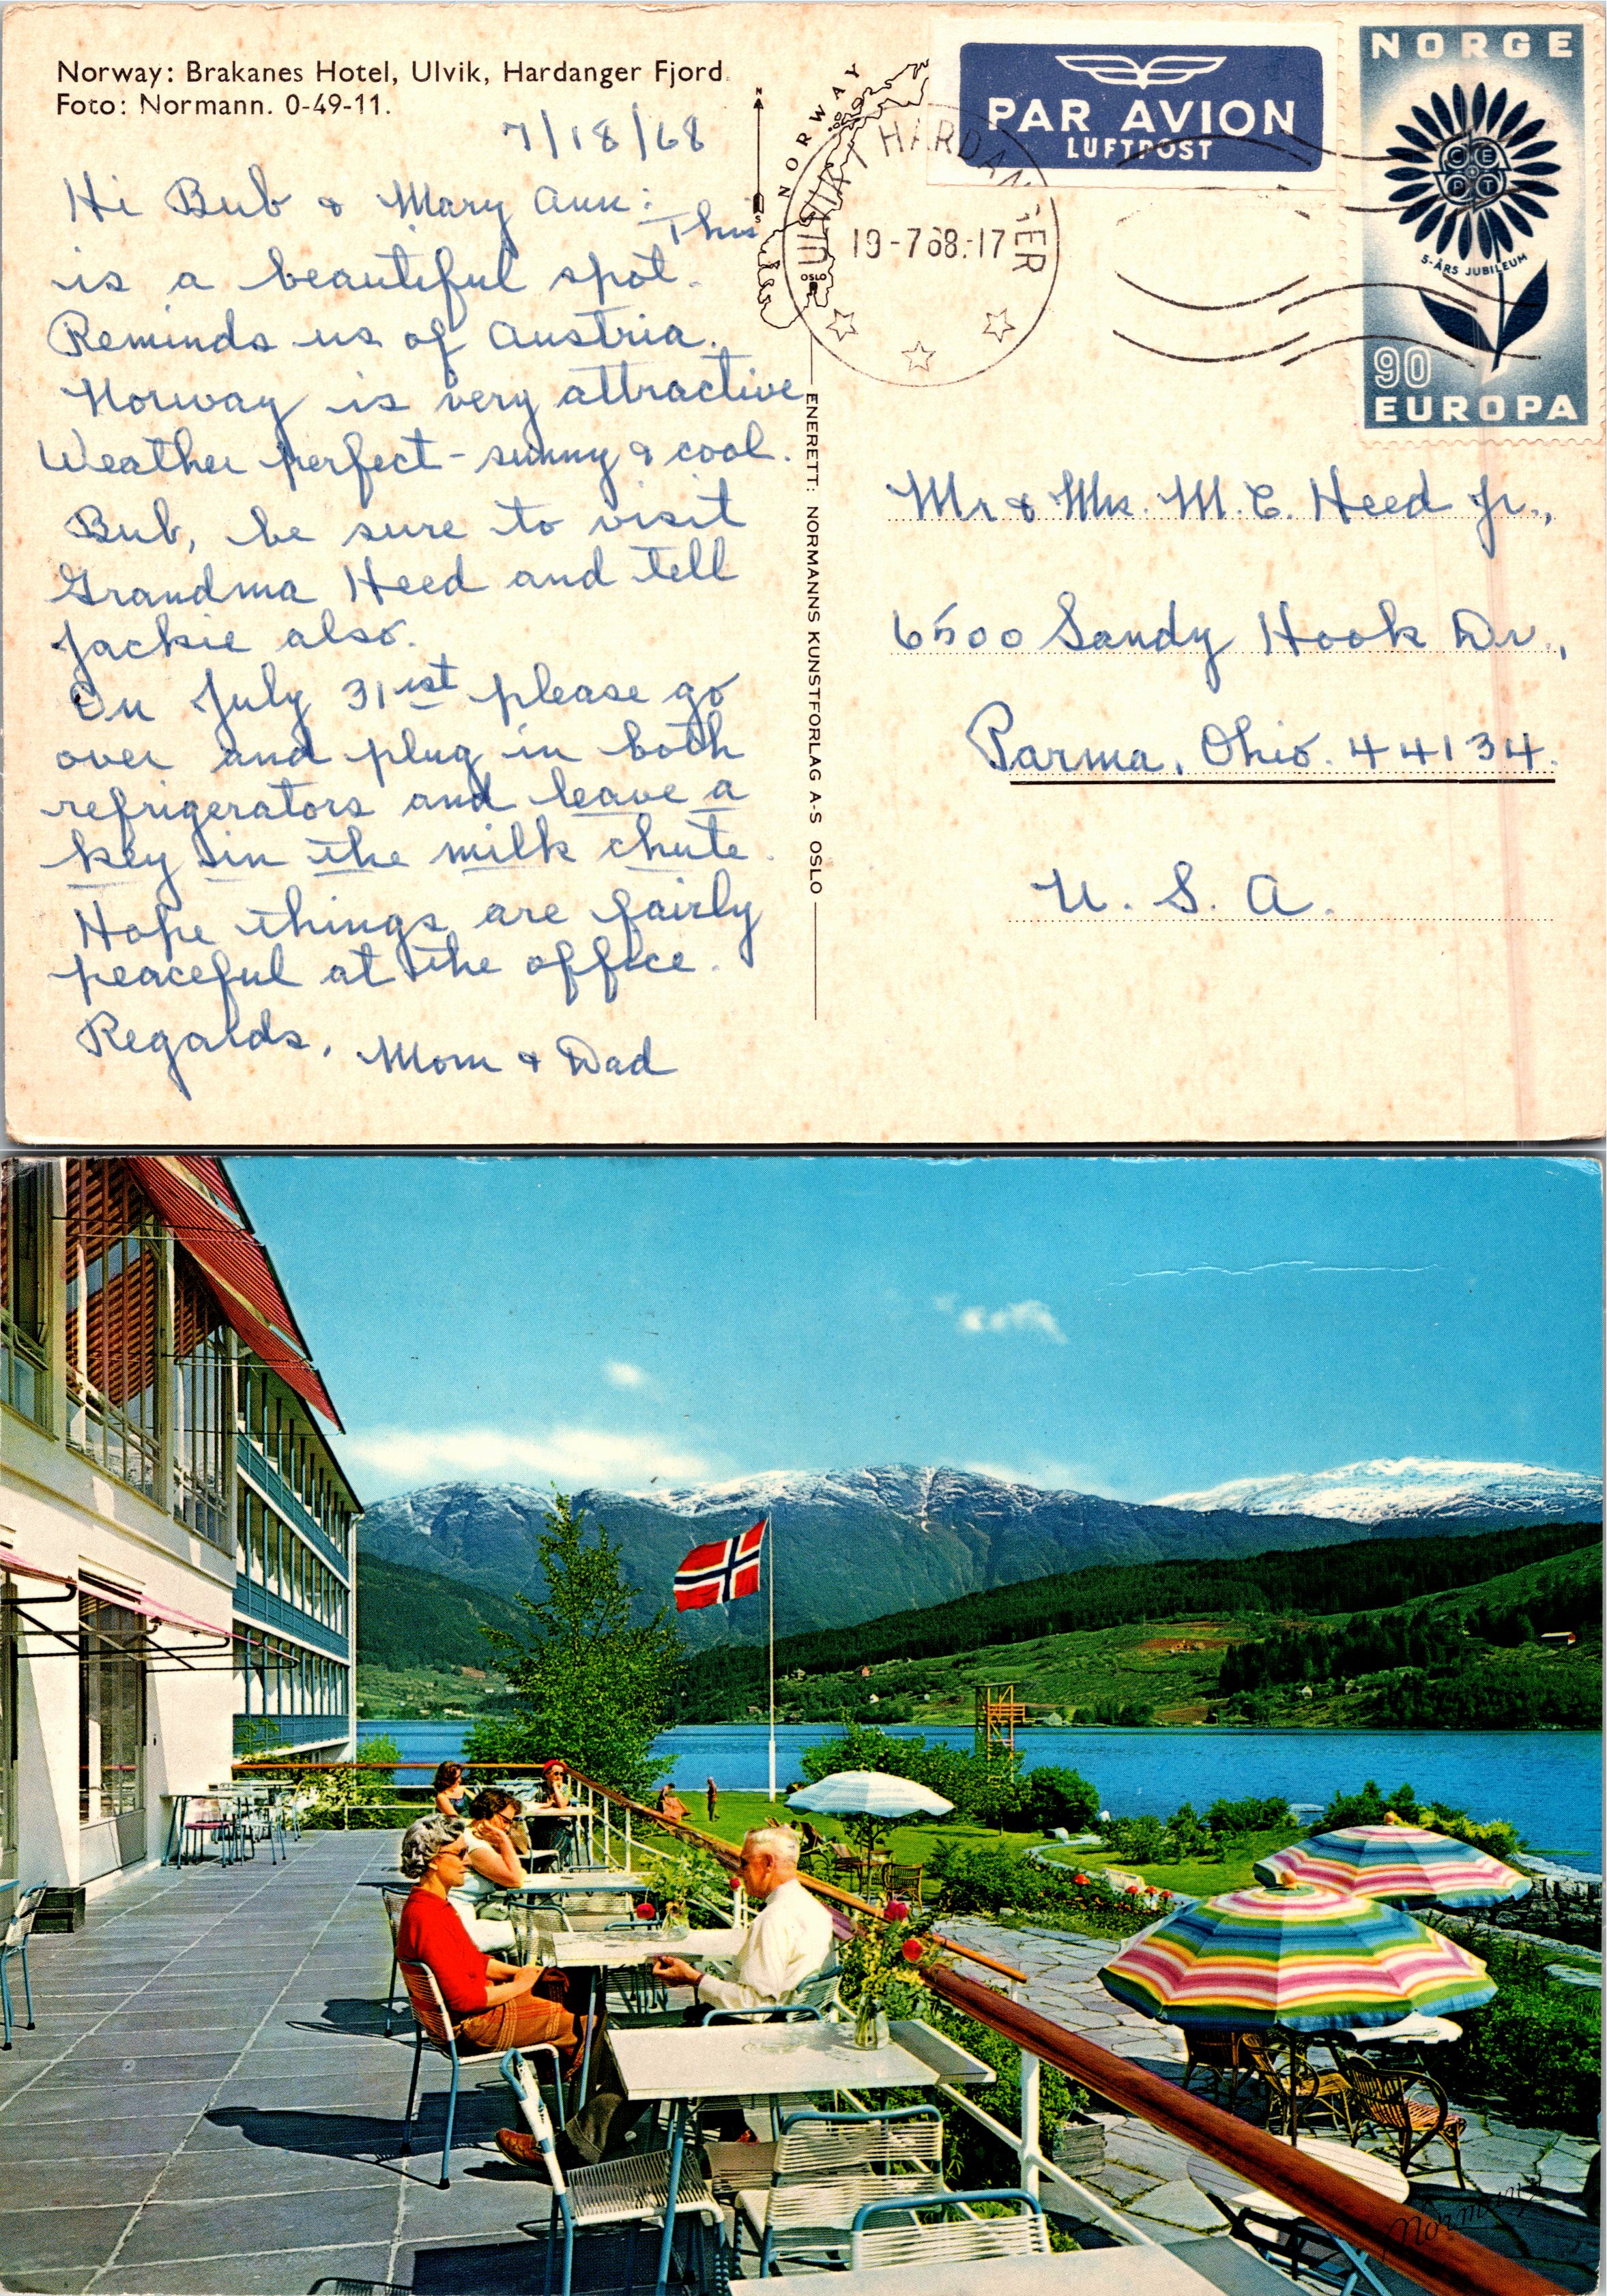 Norway: Brakanes Hotel, Ulvik, Hardanger Fjord.
Foto: Normann. O-49-11.
7/18/68
Hi Bub & Mary Ann: This
is a beautiful spot.
Reminds us of Austria.
Norway is very attractive
Weather perfect - sunny & cool.
Bub, be sure to visit
Grandma Heed and tell
Jackie also.
On July 31ist please go
over and plug in both
refrigerators and leave a
key in the milk chute.
Hope things are fairly
peaceful at the office.
Regards, Mom & Dad
N
S
NORWAY
OSLO
ULVIK I HARDANGER
19-7 68.-17
PAR AVION
LUFTPOST
NORGE
CEPT
5-ÅRS JUBILEUM
90
EUROPA
ENERETT: NORMANNS KUNSTFORLAG A-S OSLO
Mr & Mrs. M. C. Heed Jr.,
6500 Sandy Hook Dr.,
Parma, Ohio. 44134.
U. S. A.
Normann